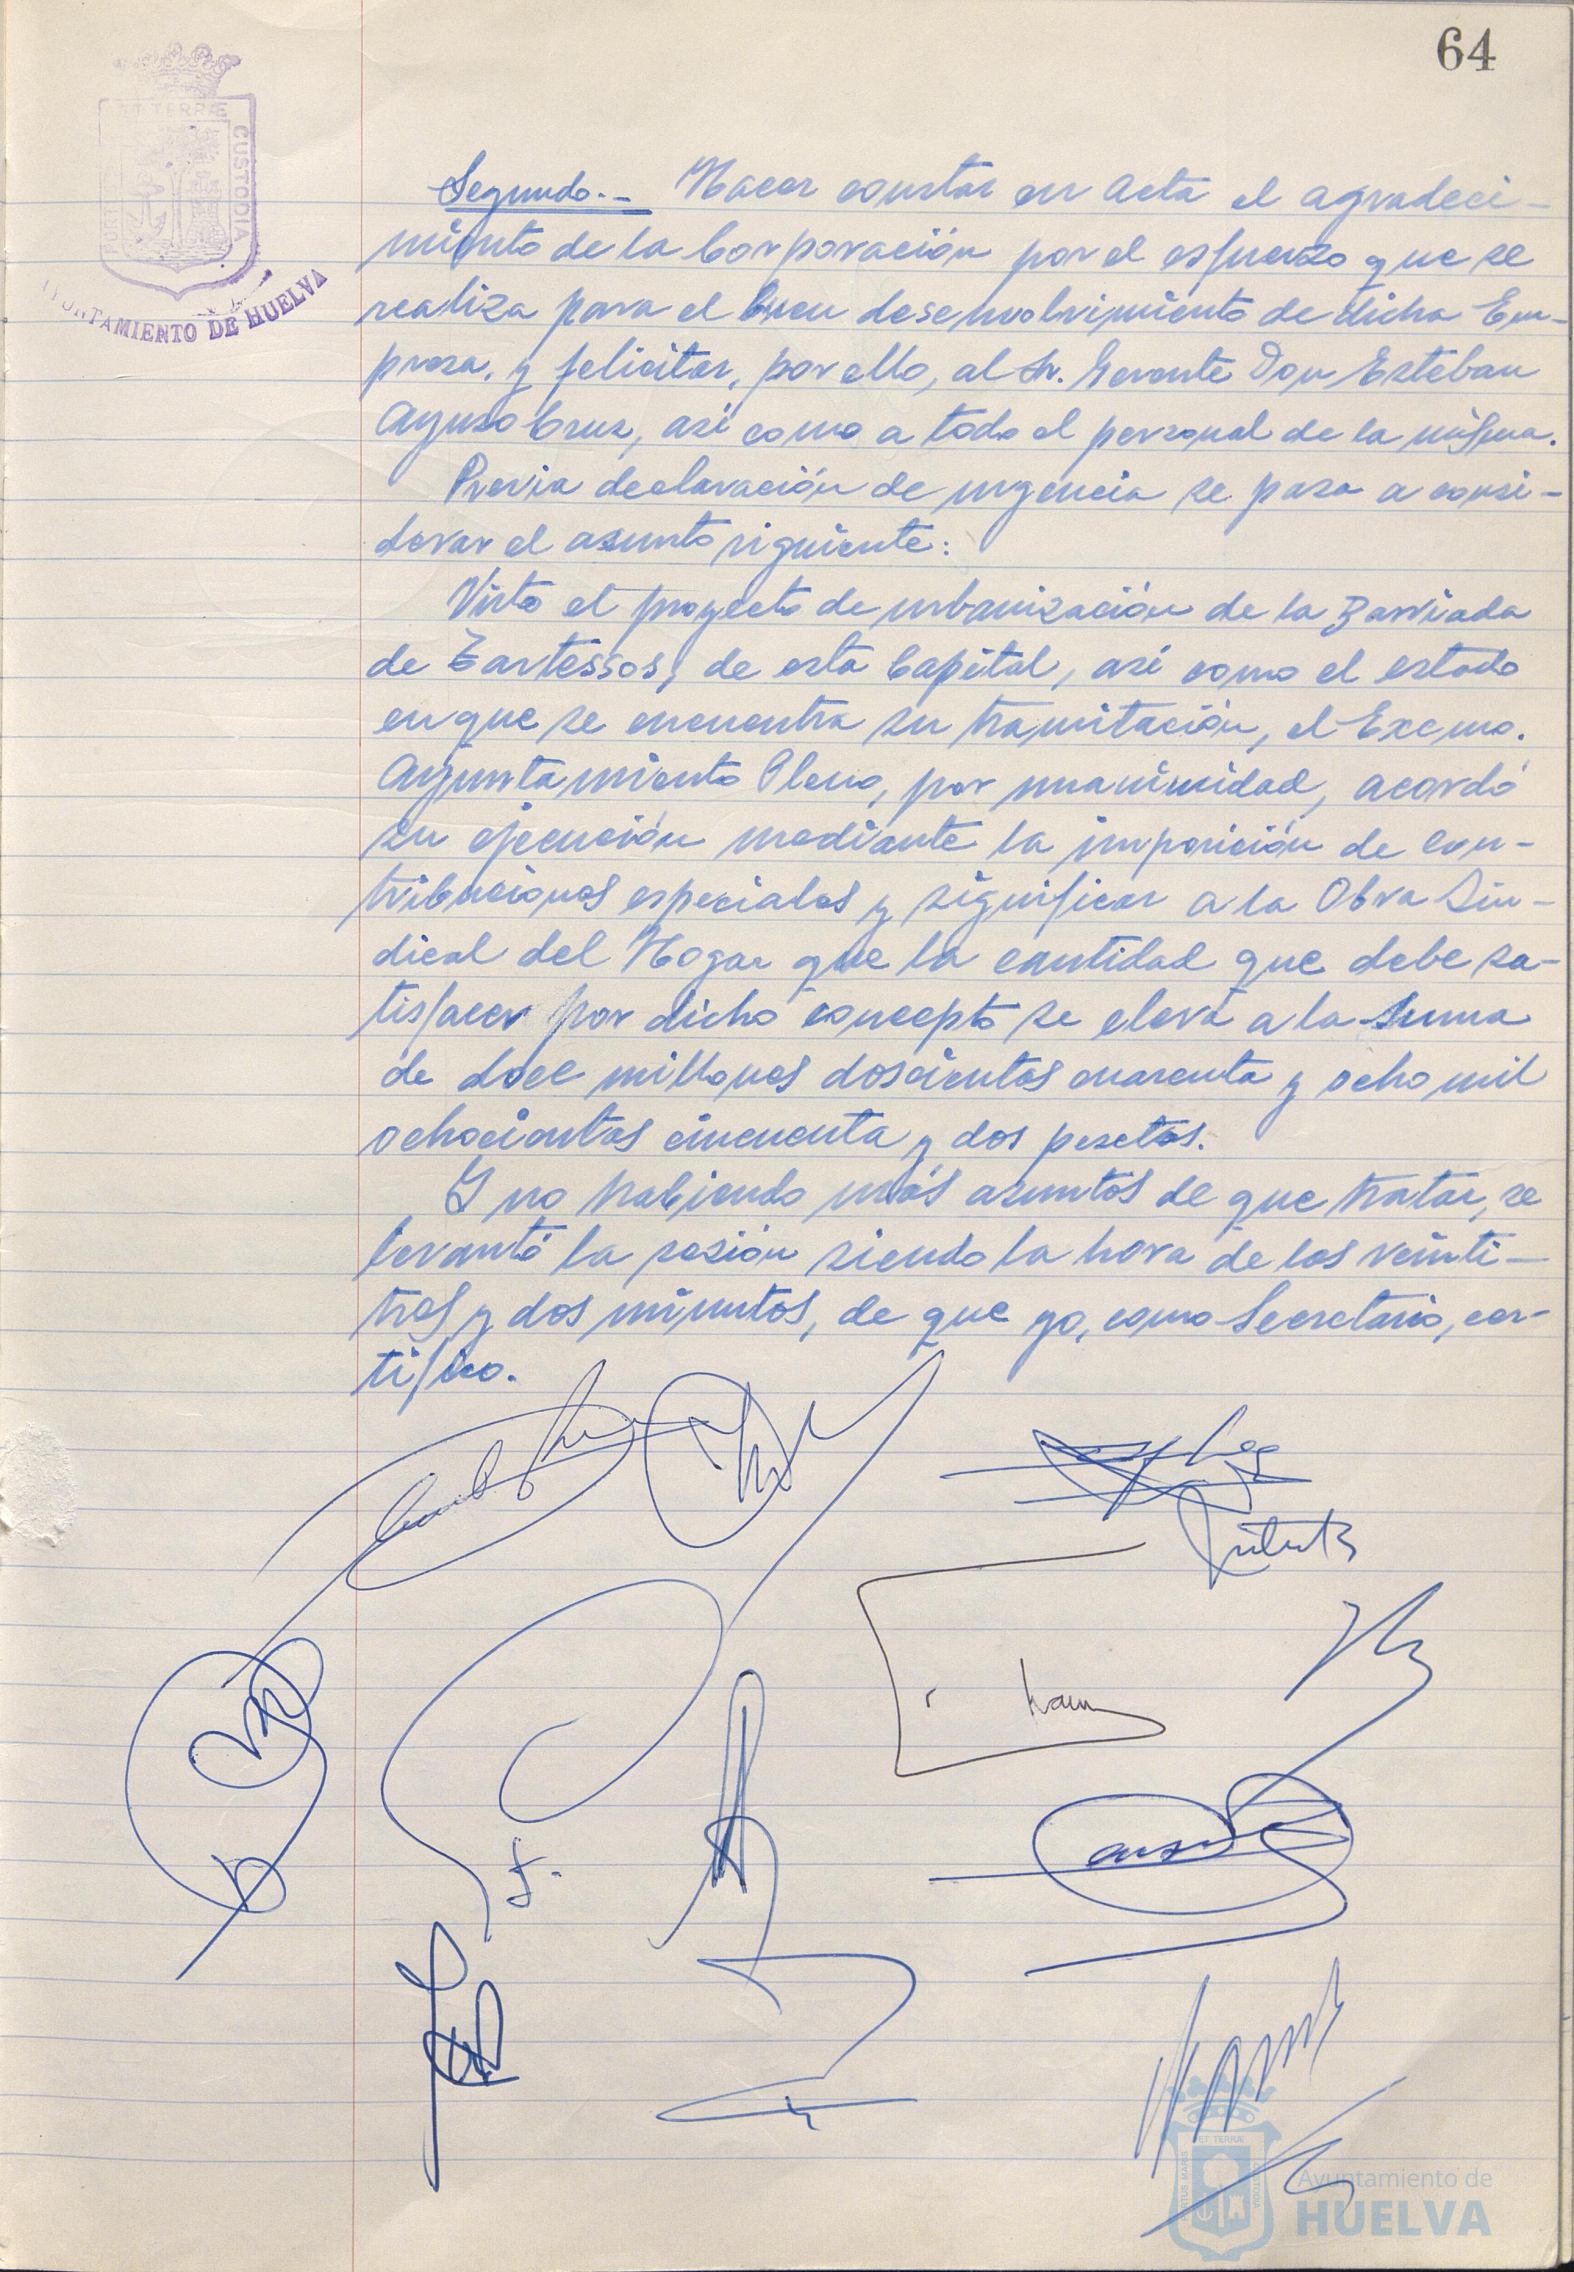 64
ET TERRÆ
CUSTODIA
AYUNTAMIENTO DE HUELVA
Segundo.- Hacer constar en acta el agradeci-
miento de la Corporación por el esfuerzo que se
realiza para el buen desenvolvimiento de dicha Em-
presa, y felicitar, por ello, al Sr. Gerente Don Esteban
Ayuso Cruz, así como a todo el personal de la misma.
Previa declaración de urgencia se pasa a consi-
derar el asunto siguiente:
Visto el proyecto de urbanización de la Barriada
de Tartessos, de esta Capital, así como el estado
en que se encuentra su tramitación, el Excmo.
Ayuntamiento Pleno, por unanimidad, acordó
su ejecución mediante la imposición de con-
tribuciones especiales y significar a la Obra Sin-
dical del Hogar que la cantidad que debe sa-
tisfacer por dicho concepto se eleva a la suma
de doce millones doscientas cuarenta y ocho mil
ochocientas cincuenta y dos pesetas.
Y no habiendo más asuntos de que tratar, se
levantó la sesión siendo la hora de las veinti-
tres y dos minutos, de que yo, como Secretario, cer-
tifico.
ET TERRÆ
PORTUS MARIS
CUSTODIA
Ayuntamiento de
HUELVA